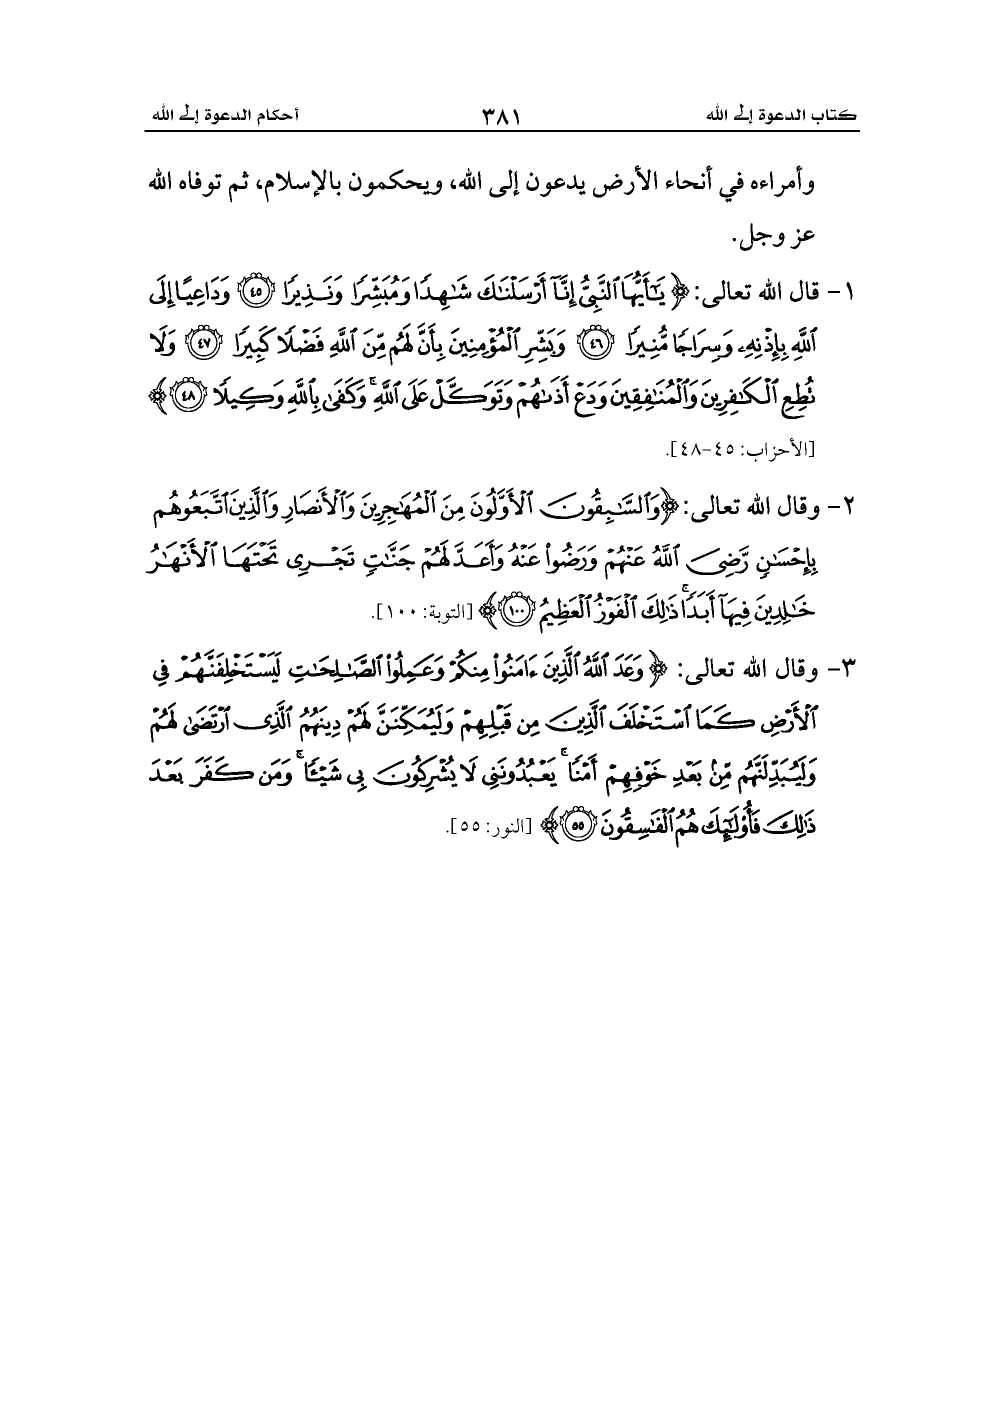 كتاب الدعوة إلى الله ٣٨١ أحكام الدعوة إلى الله
وأمراءه في أنحاء الأرض يدعون إلى الله، ويحكمون بالإسلام، ثم توفاه الله
عز وجل.
١- قال الله تعالى: ﴿ يَٰٓأَيُّهَا ٱلنَّبِيُّ إِنَّآ أَرْسَلْنَٰكَ شَٰهِدًا وَمُبَشِّرًا وَنَذِيرًا ٤٥ وَدَاعِيًا إِلَى
ٱللَّهِ بِإِذْنِهِۦ وَسِرَاجًا مُّنِيرًا ٤٦ وَبَشِّرِ ٱلْمُؤْمِنِينَ بِأَنَّ لَهُم مِّنَ ٱللَّهِ فَضْلًا كَبِيرًا ٤٧ وَلَا
تُطِعِ ٱلْكَٰفِرِينَ وَٱلْمُنَٰفِقِينَ وَدَعْ أَذَىٰهُمْ وَتَوَكَّلْ عَلَى ٱللَّهِ ۚ وَكَفَىٰ بِٱللَّهِ وَكِيلًا ٤٨ ﴾
[الأحزاب: ٤٥-٤٨].
٢- وقال الله تعالى: ﴿وَٱلسَّٰبِقُونَ ٱلْأَوَّلُونَ مِنَ ٱلْمُهَٰجِرِينَ وَٱلْأَنصَارِ وَٱلَّذِينَ ٱتَّبَعُوهُم
بِإِحْسَٰنٍ رَّضِيَ ٱللَّهُ عَنْهُمْ وَرَضُوا۟ عَنْهُ وَأَعَدَّ لَهُمْ جَنَّٰتٍ تَجْرِي تَحْتَهَا ٱلْأَنْهَٰرُ
خَٰلِدِينَ فِيهَآ أَبَدًا ۚ ذَٰلِكَ ٱلْفَوْزُ ٱلْعَظِيمُ ١٠٠ ﴾ [التوبة: ١٠٠].
٣- وقال الله تعالى: ﴿ وَعَدَ ٱللَّهُ ٱلَّذِينَ ءَامَنُوا۟ مِنكُمْ وَعَمِلُوا۟ ٱلصَّٰلِحَٰتِ لَيَسْتَخْلِفَنَّهُمْ فِي
ٱلْأَرْضِ كَمَا ٱسْتَخْلَفَ ٱلَّذِينَ مِن قَبْلِهِمْ وَلَيُمَكِّنَنَّ لَهُمْ دِينَهُمُ ٱلَّذِي ٱرْتَضَىٰ لَهُمْ
وَلَيُبَدِّلَنَّهُم مِّنۢ بَعْدِ خَوْفِهِمْ أَمْنًا ۚ يَعْبُدُونَنِي لَا يُشْرِكُونَ بِي شَيْـًٔا ۚ وَمَن كَفَرَ بَعْدَ
ذَٰلِكَ فَأُو۟لَٰٓئِكَ هُمُ ٱلْفَٰسِقُونَ ٥٥ ﴾ [النور: ٥٥].